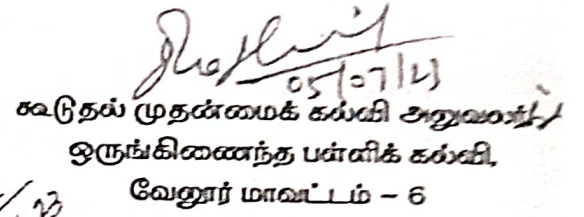 05/07/23
கூடுதல் முதன்மைக் கல்வி அலுவலர்
ஒருங்கிணைந்த பள்ளிக் கல்வி,
வேலூர் மாவட்டம் - 6